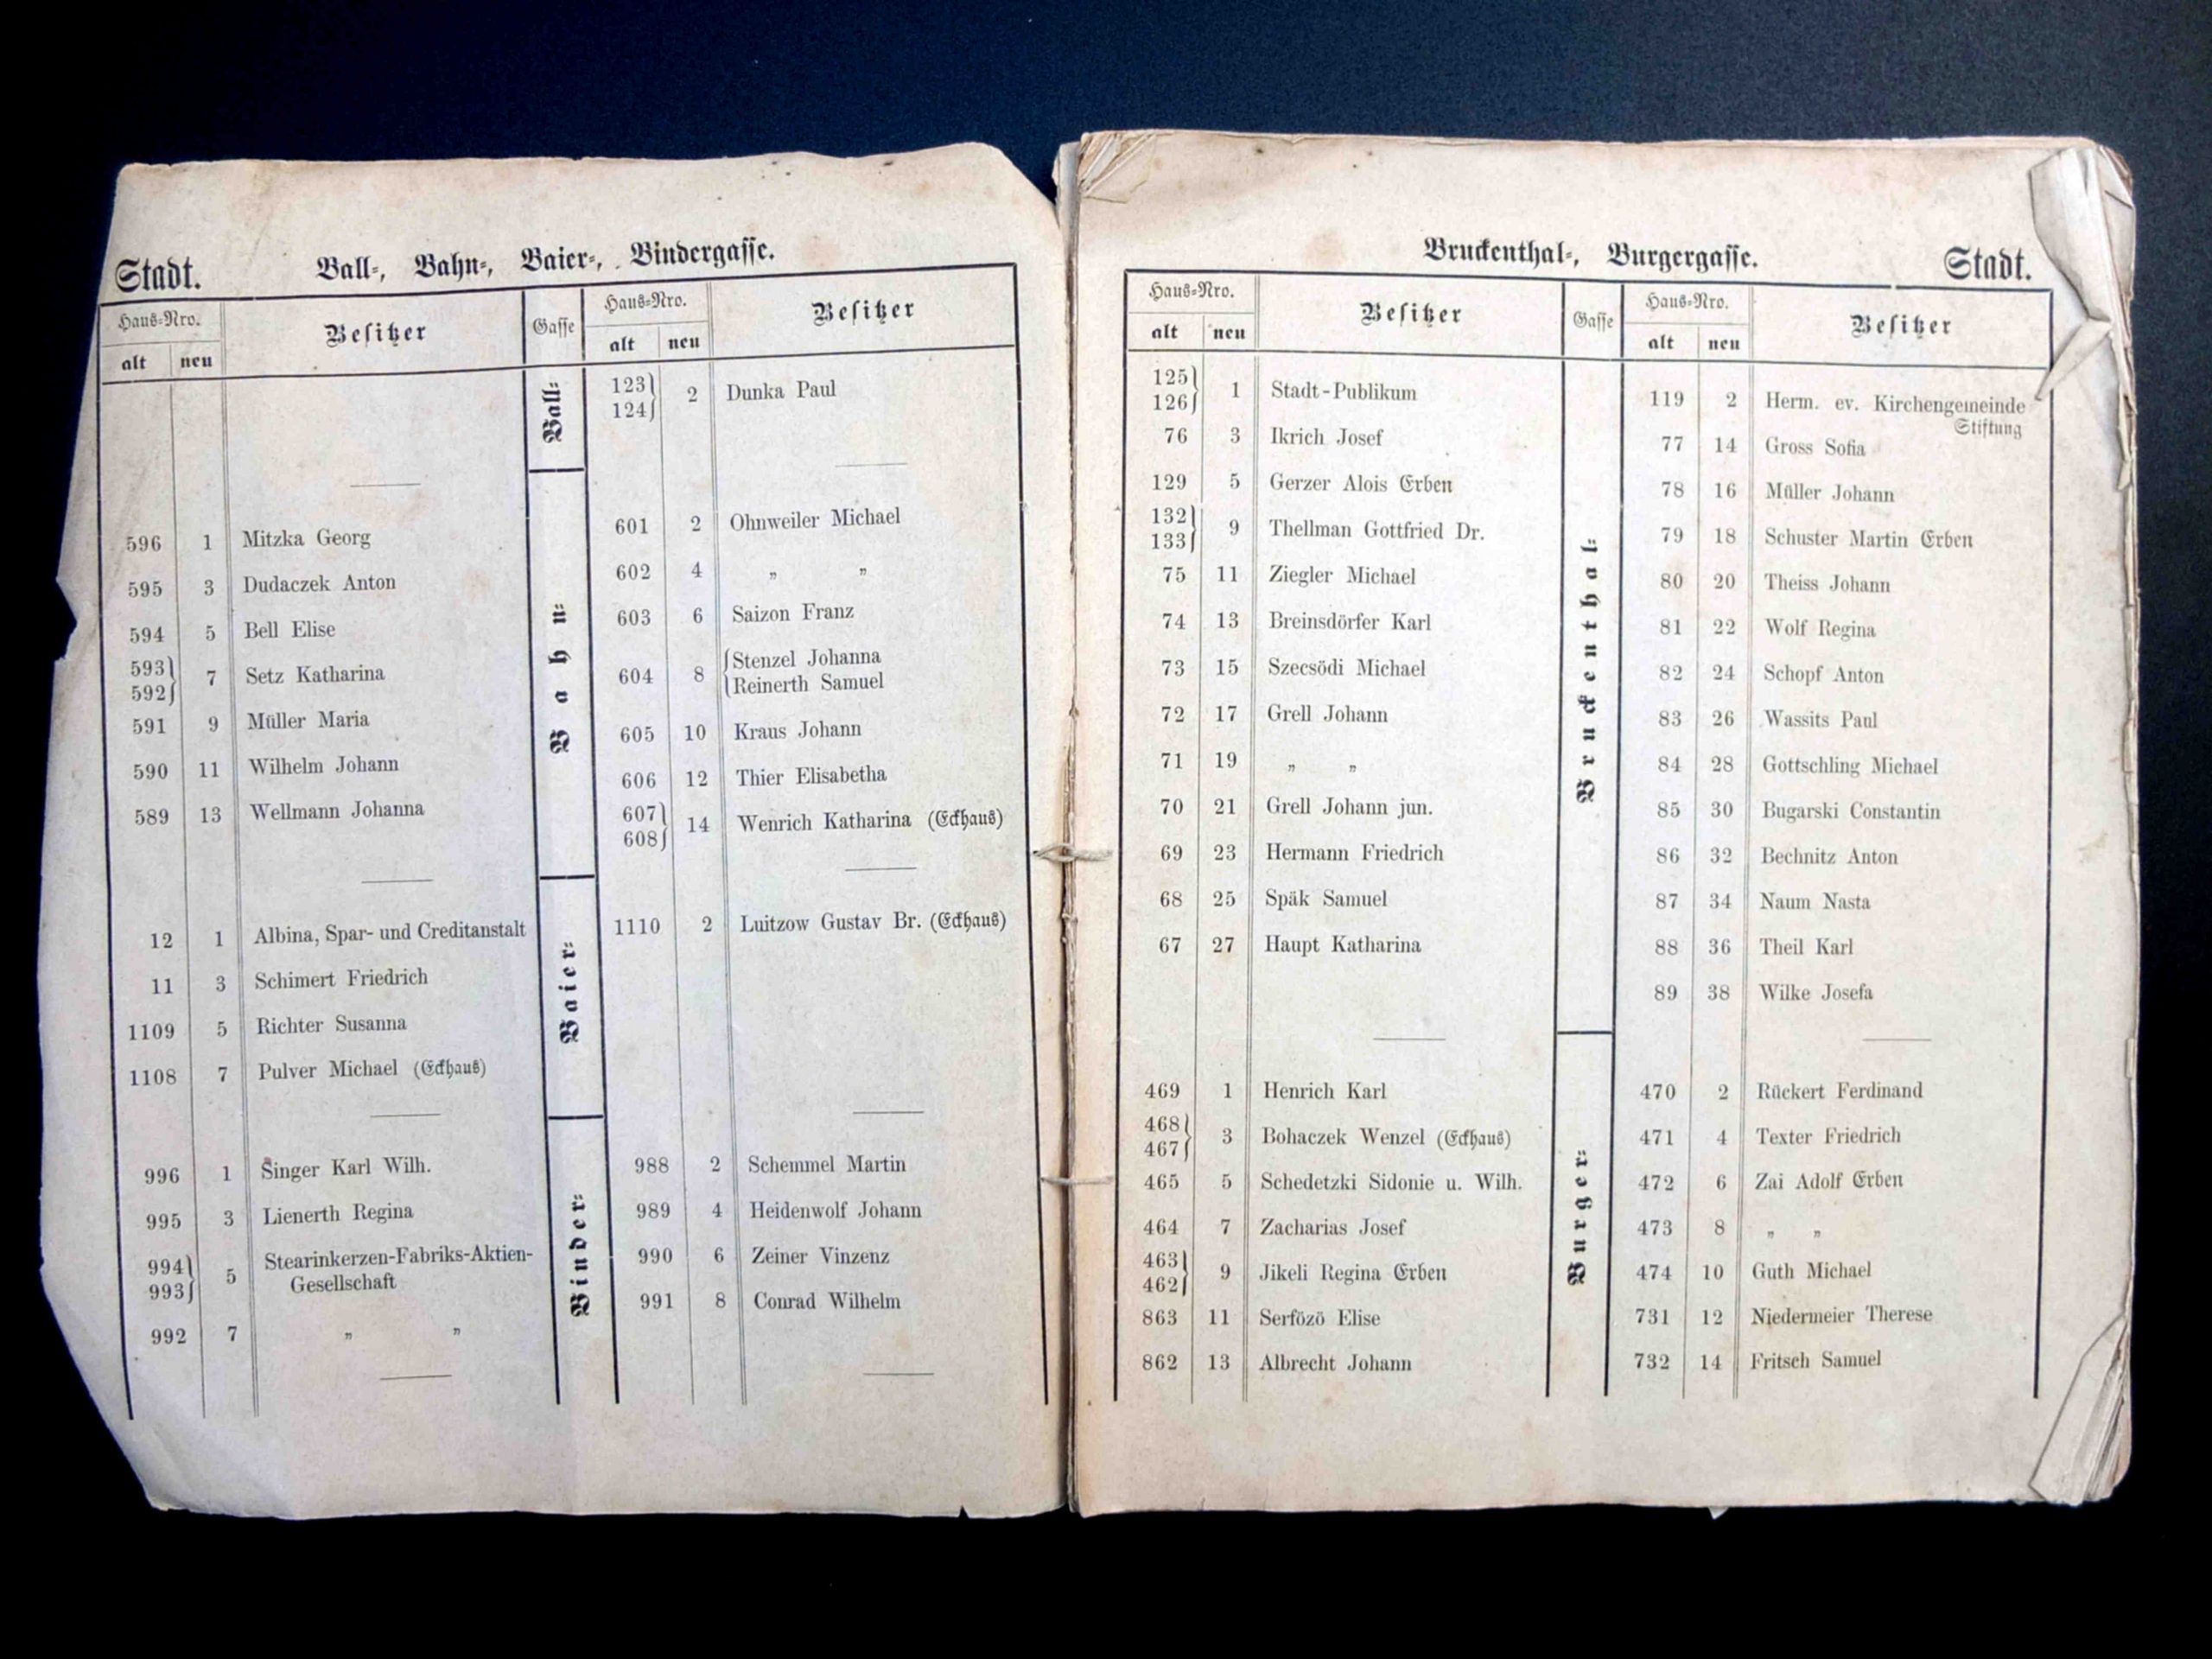 Stadt. Ball-, Bahn-, Baier-, Bindergasse.
Haus-Nro. Besitzer Gasse Haus-Nro. Besitzer
alt neu alt neu
Ball-
123 2 Dunka Paul
124
Bahn-
601 2 Ohnweiler Michael
596 1 Mitzka Georg
602 4 „ „
595 3 Dudaczek Anton
603 6 Saizon Franz
594 5 Bell Elise
Stenzel Johanna
593 7 Setz Katharina 604 8
592 Reinerth Samuel
591 9 Müller Maria 605 10 Kraus Johann
590 11 Wilhelm Johann 606 12 Thier Elisabetha
589 13 Wellmann Johanna 607 14 Wenrich Katharina (Eckhaus)
608
Baier-
12 1 Albina, Spar- und Creditanstalt 1110 2 Luitzow Gustav Br. (Eckhaus)
11 3 Schimert Friedrich
1109 5 Richter Susanna
1108 7 Pulver Michael (Eckhaus)
Binder-
996 1 Singer Karl Wilh. 988 2 Schemmel Martin
995 3 Lienerth Regina 989 4 Heidenwolf Johann
994 5 Stearinkerzen-Fabriks-Aktien- 990 6 Zeiner Vinzenz
993 Gesellschaft
991 8 Conrad Wilhelm
992 7 „ „
Bruckenthal-, Burgergasse. Stadt.
Haus-Nro. Besitzer Gasse Haus-Nro. Besitzer
alt neu alt neu
Bruckenthal-
125 1 Stadt-Publikum 119 2 Herm. ev. Kirchengemeinde
126 Stiftung
76 3 Ikrich Josef 77 14 Gross Sofia
129 5 Gerzer Alois Erben 78 16 Müller Johann
132 9 Thellman Gottfried Dr. 79 18 Schuster Martin Erben
133
75 11 Ziegler Michael 80 20 Theiss Johann
74 13 Breinsdörfer Karl 81 22 Wolf Regina
73 15 Szecsödi Michael 82 24 Schopf Anton
72 17 Grell Johann 83 26 Wassits Paul
71 19 „ „ 84 28 Gottschling Michael
70 21 Grell Johann jun. 85 30 Bugarski Constantin
69 23 Hermann Friedrich 86 32 Bechnitz Anton
68 25 Späk Samuel 87 34 Naum Nasta
67 27 Haupt Katharina 88 36 Theil Karl
89 38 Wilke Josefa
Burger-
469 1 Henrich Karl 470 2 Rückert Ferdinand
468 3 Bohaczek Wenzel (Eckhaus) 471 4 Texter Friedrich
467
465 5 Schedetzki Sidonie u. Wilh. 472 6 Zai Adolf Erben
464 7 Zacharias Josef 473 8 „ „
463 9 Jikeli Regina Erben 474 10 Guth Michael
462
863 11 Serfözö Elise 731 12 Niedermeier Therese
862 13 Albrecht Johann 732 14 Fritsch Samuel